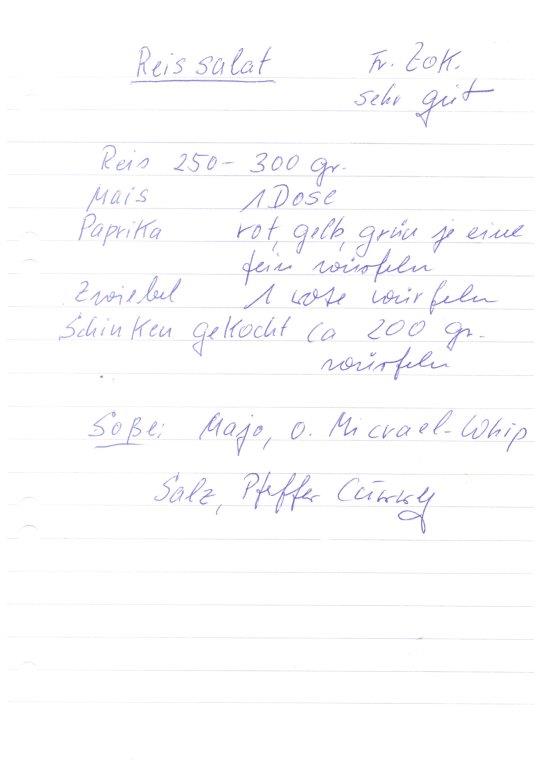 Reissalat Fr. Zok.
sehr gut
Reis 250 - 300 gr.
Mais 1 Dose
Paprika rot, gelb, grün je eine
fein würfeln
Zwiebel 1 rote würfeln
Schinken gekocht ca 200 gr.
würfeln
Soße: Majo, o. Micrael-Whip
Salz, Pfeffer Cürry